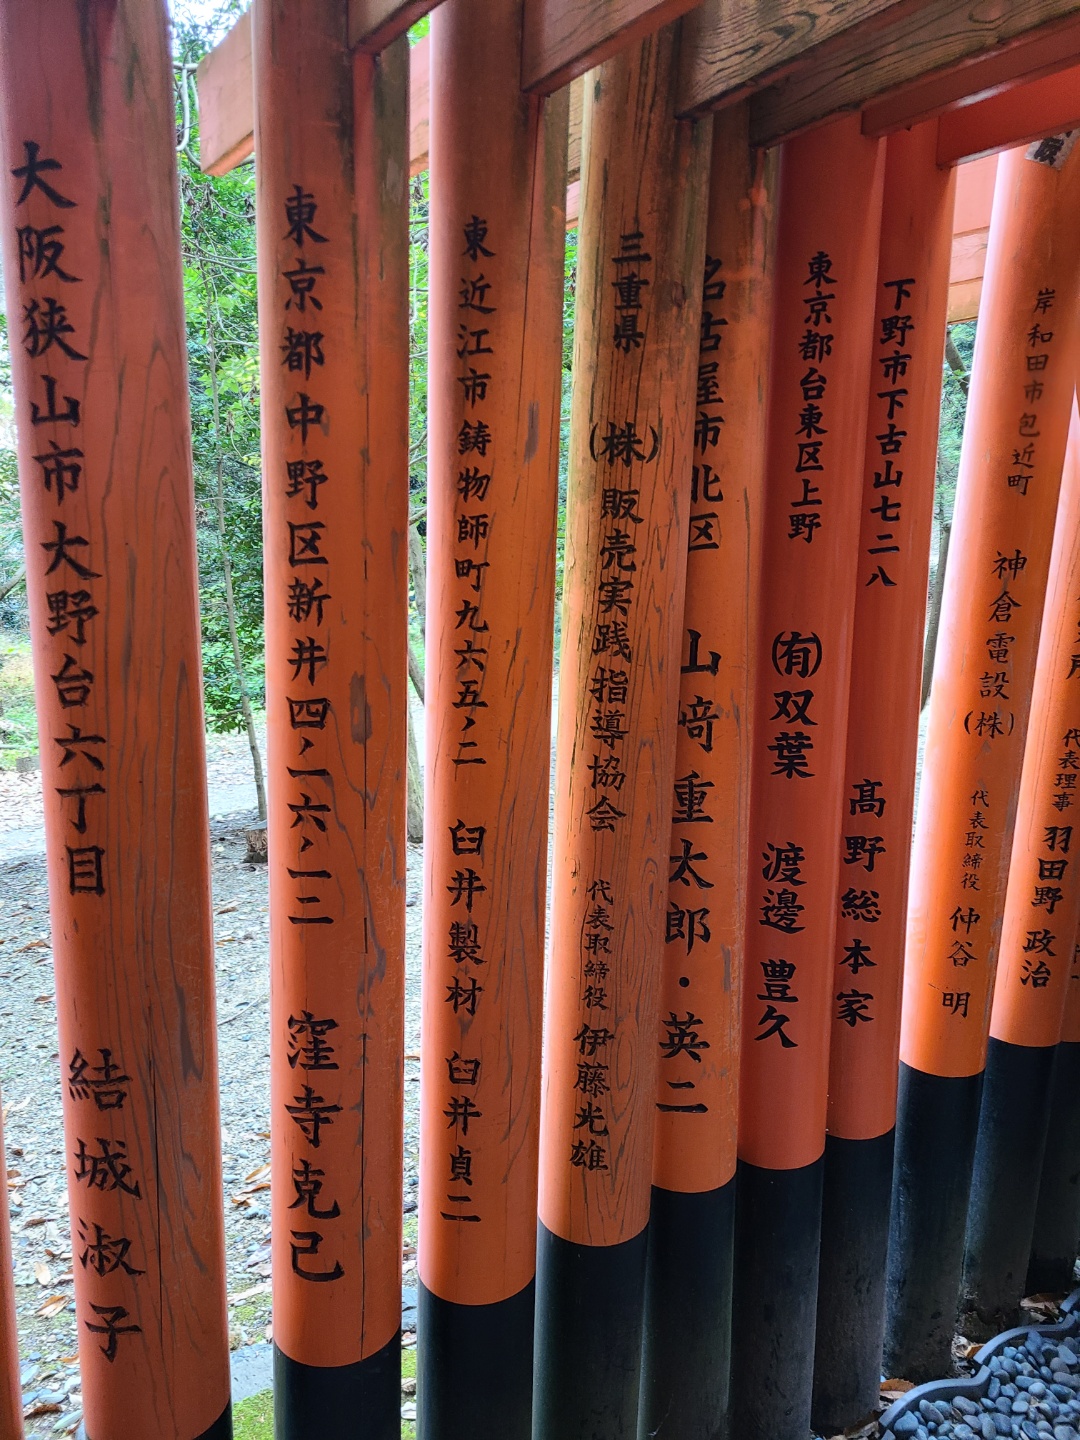 大阪狭山市大野台六丁目 結城淑子
東京都中野区新井四ノ一六ノ一二 窪寺克己
東近江市鋳物師町九六五ノ二 臼井製材 臼井貞二
三重県 (株)販売実践指導協会 代表取締役 伊藤光雄
名古屋市北区 山﨑重太郎・英二
東京都台東区上野 (有)双葉 渡邊豊久
下野市下古山七二八 髙野総本家
岸和田市包近町 神倉電設(株) 代表取締役 仲谷明
代表理事 羽田野政治